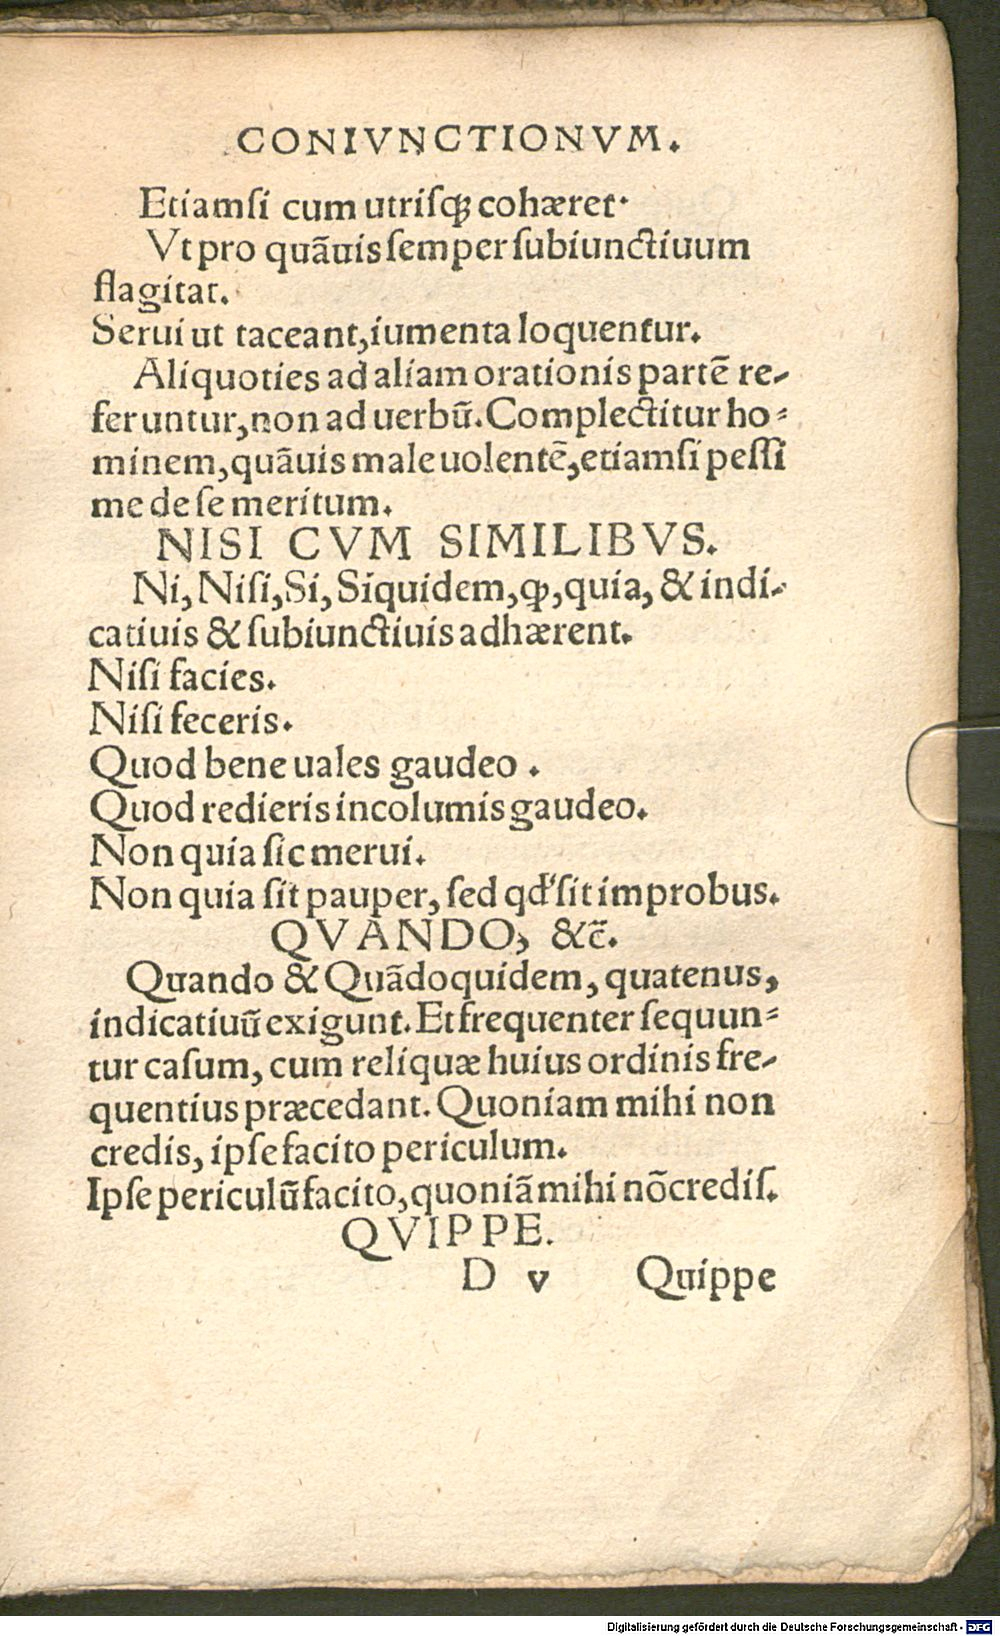 CONIVNCTIONVM.
Etiamſi cum utriſq; cohæret.
Vt pro quãuis ſemper ſubiunctiuum
flagitat.
Serui ut taceant, iumenta loquentur.
Aliquoties ad aliam orationis partẽ re-
feruntur, non ad uerbũ. Complectitur ho-
minem, quãuis male uolentẽ, etiamſi peſſi
me de ſe meritum.
NISI CVM SIMILIBVS.
Ni, Niſi, Si, Siquidem, ꝙ, quia, & indi-
catiuis & ſubiunctiuis adhærent.
Niſi facies.
Niſi feceris.
Quod bene uales gaudeo .
Quod redieris incolumis gaudeo.
Non quia ſic merui.
Non quia ſit pauper, ſed qd' ſit improbus.
QVANDO, &c̃.
Quando & Quãdoquidem, quatenus,
indicatiuũ exigunt. Et frequenter ſequun-
tur caſum, cum reliquæ huius ordinis fre-
quentius præcedant. Quoniam mihi non
credis, ipſe facito periculum.
Ipſe periculũ facito, quoniã mihi nõ crediſ.
QVIPPE.
D v Quippe
Digitalisierung gefördert durch die Deutsche Forschungsgemeinschaft - DFG